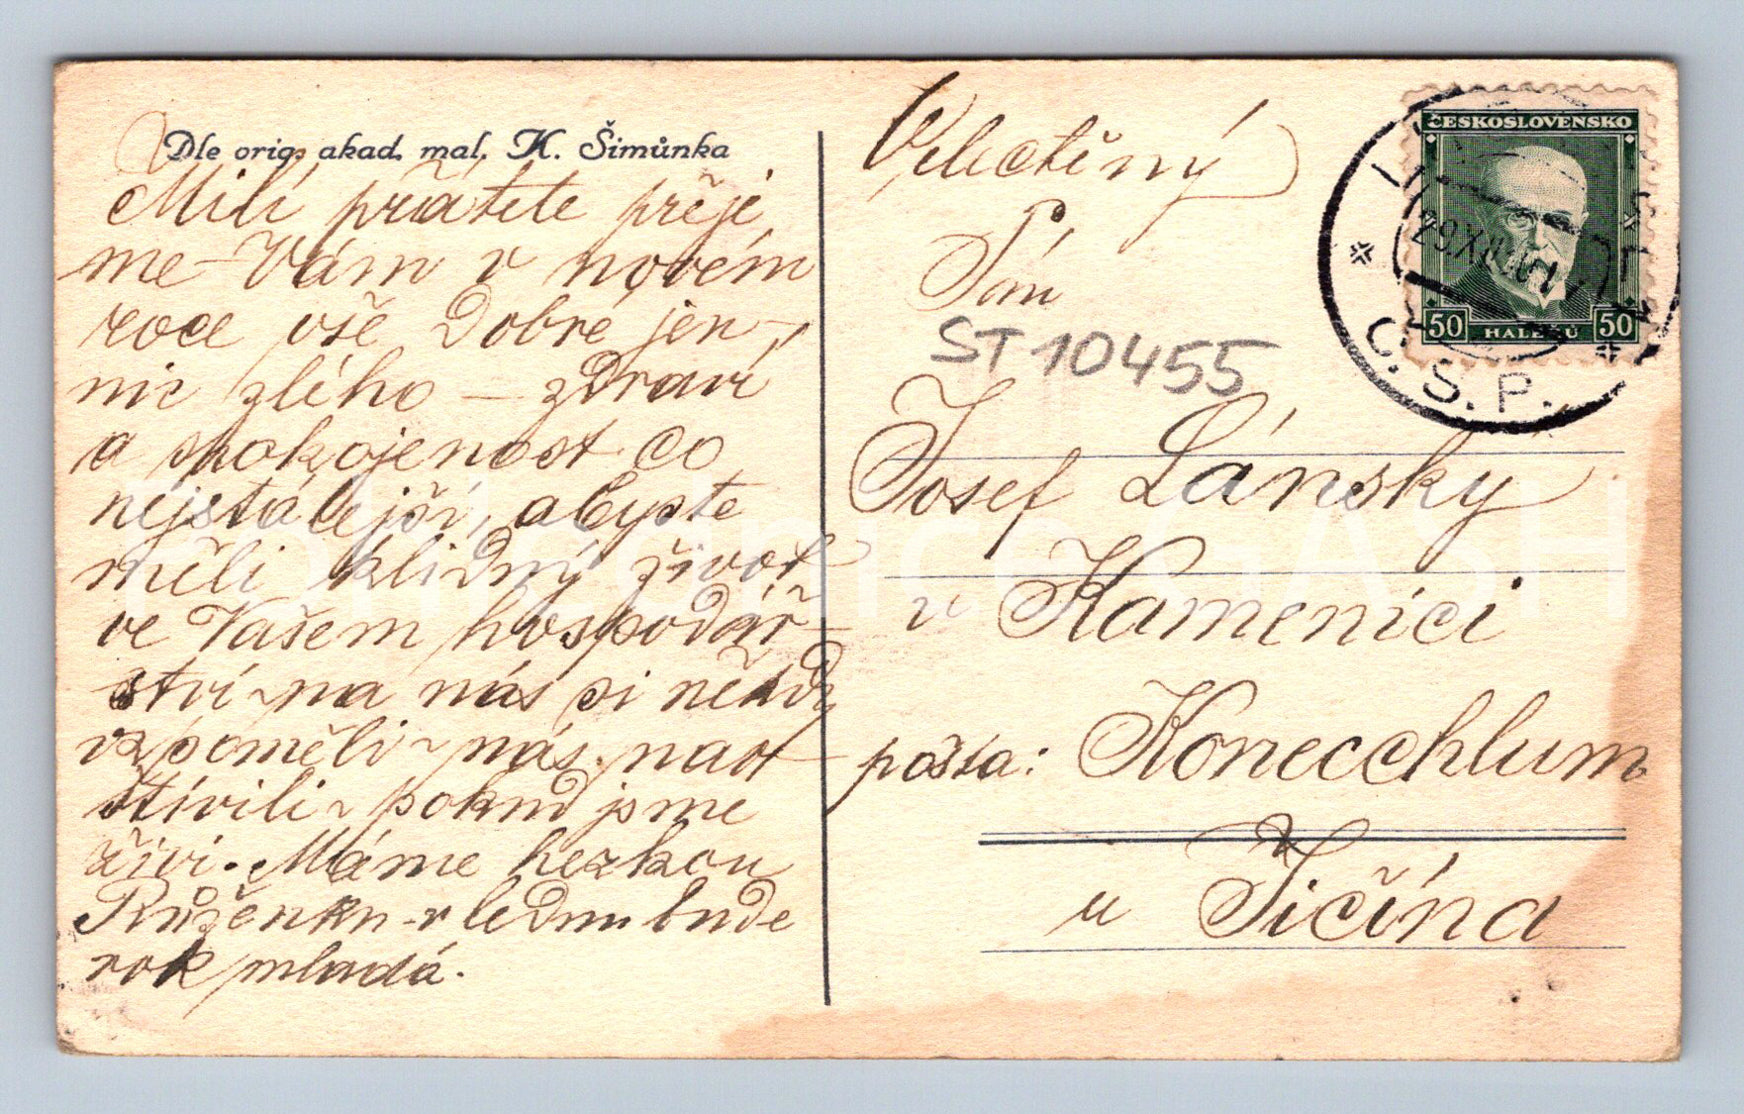 Dle orig. akad. mal. K. Šimůnka
Milí přátele přeje
me Vám v novém
roce vše dobré jen
nic zlého — zdraví
a spokojenost co
nejstálejší, abyste
měli klidný život
ve Vašem hospodář
ství ~ na nás si někdy
vzpoměli ~ nás nav
štívili ~ pokud jsme
živi. Máme hezkou
Růženku v lednu bude
rok mladá.
Velectěný
Pán
ST 10455
Josef Lánský
v Kamenici
pošta: Konecchlum
u Jičína
ČESKOSLOVENSKO
50 HALÉŘŮ 50
Č.S.P.